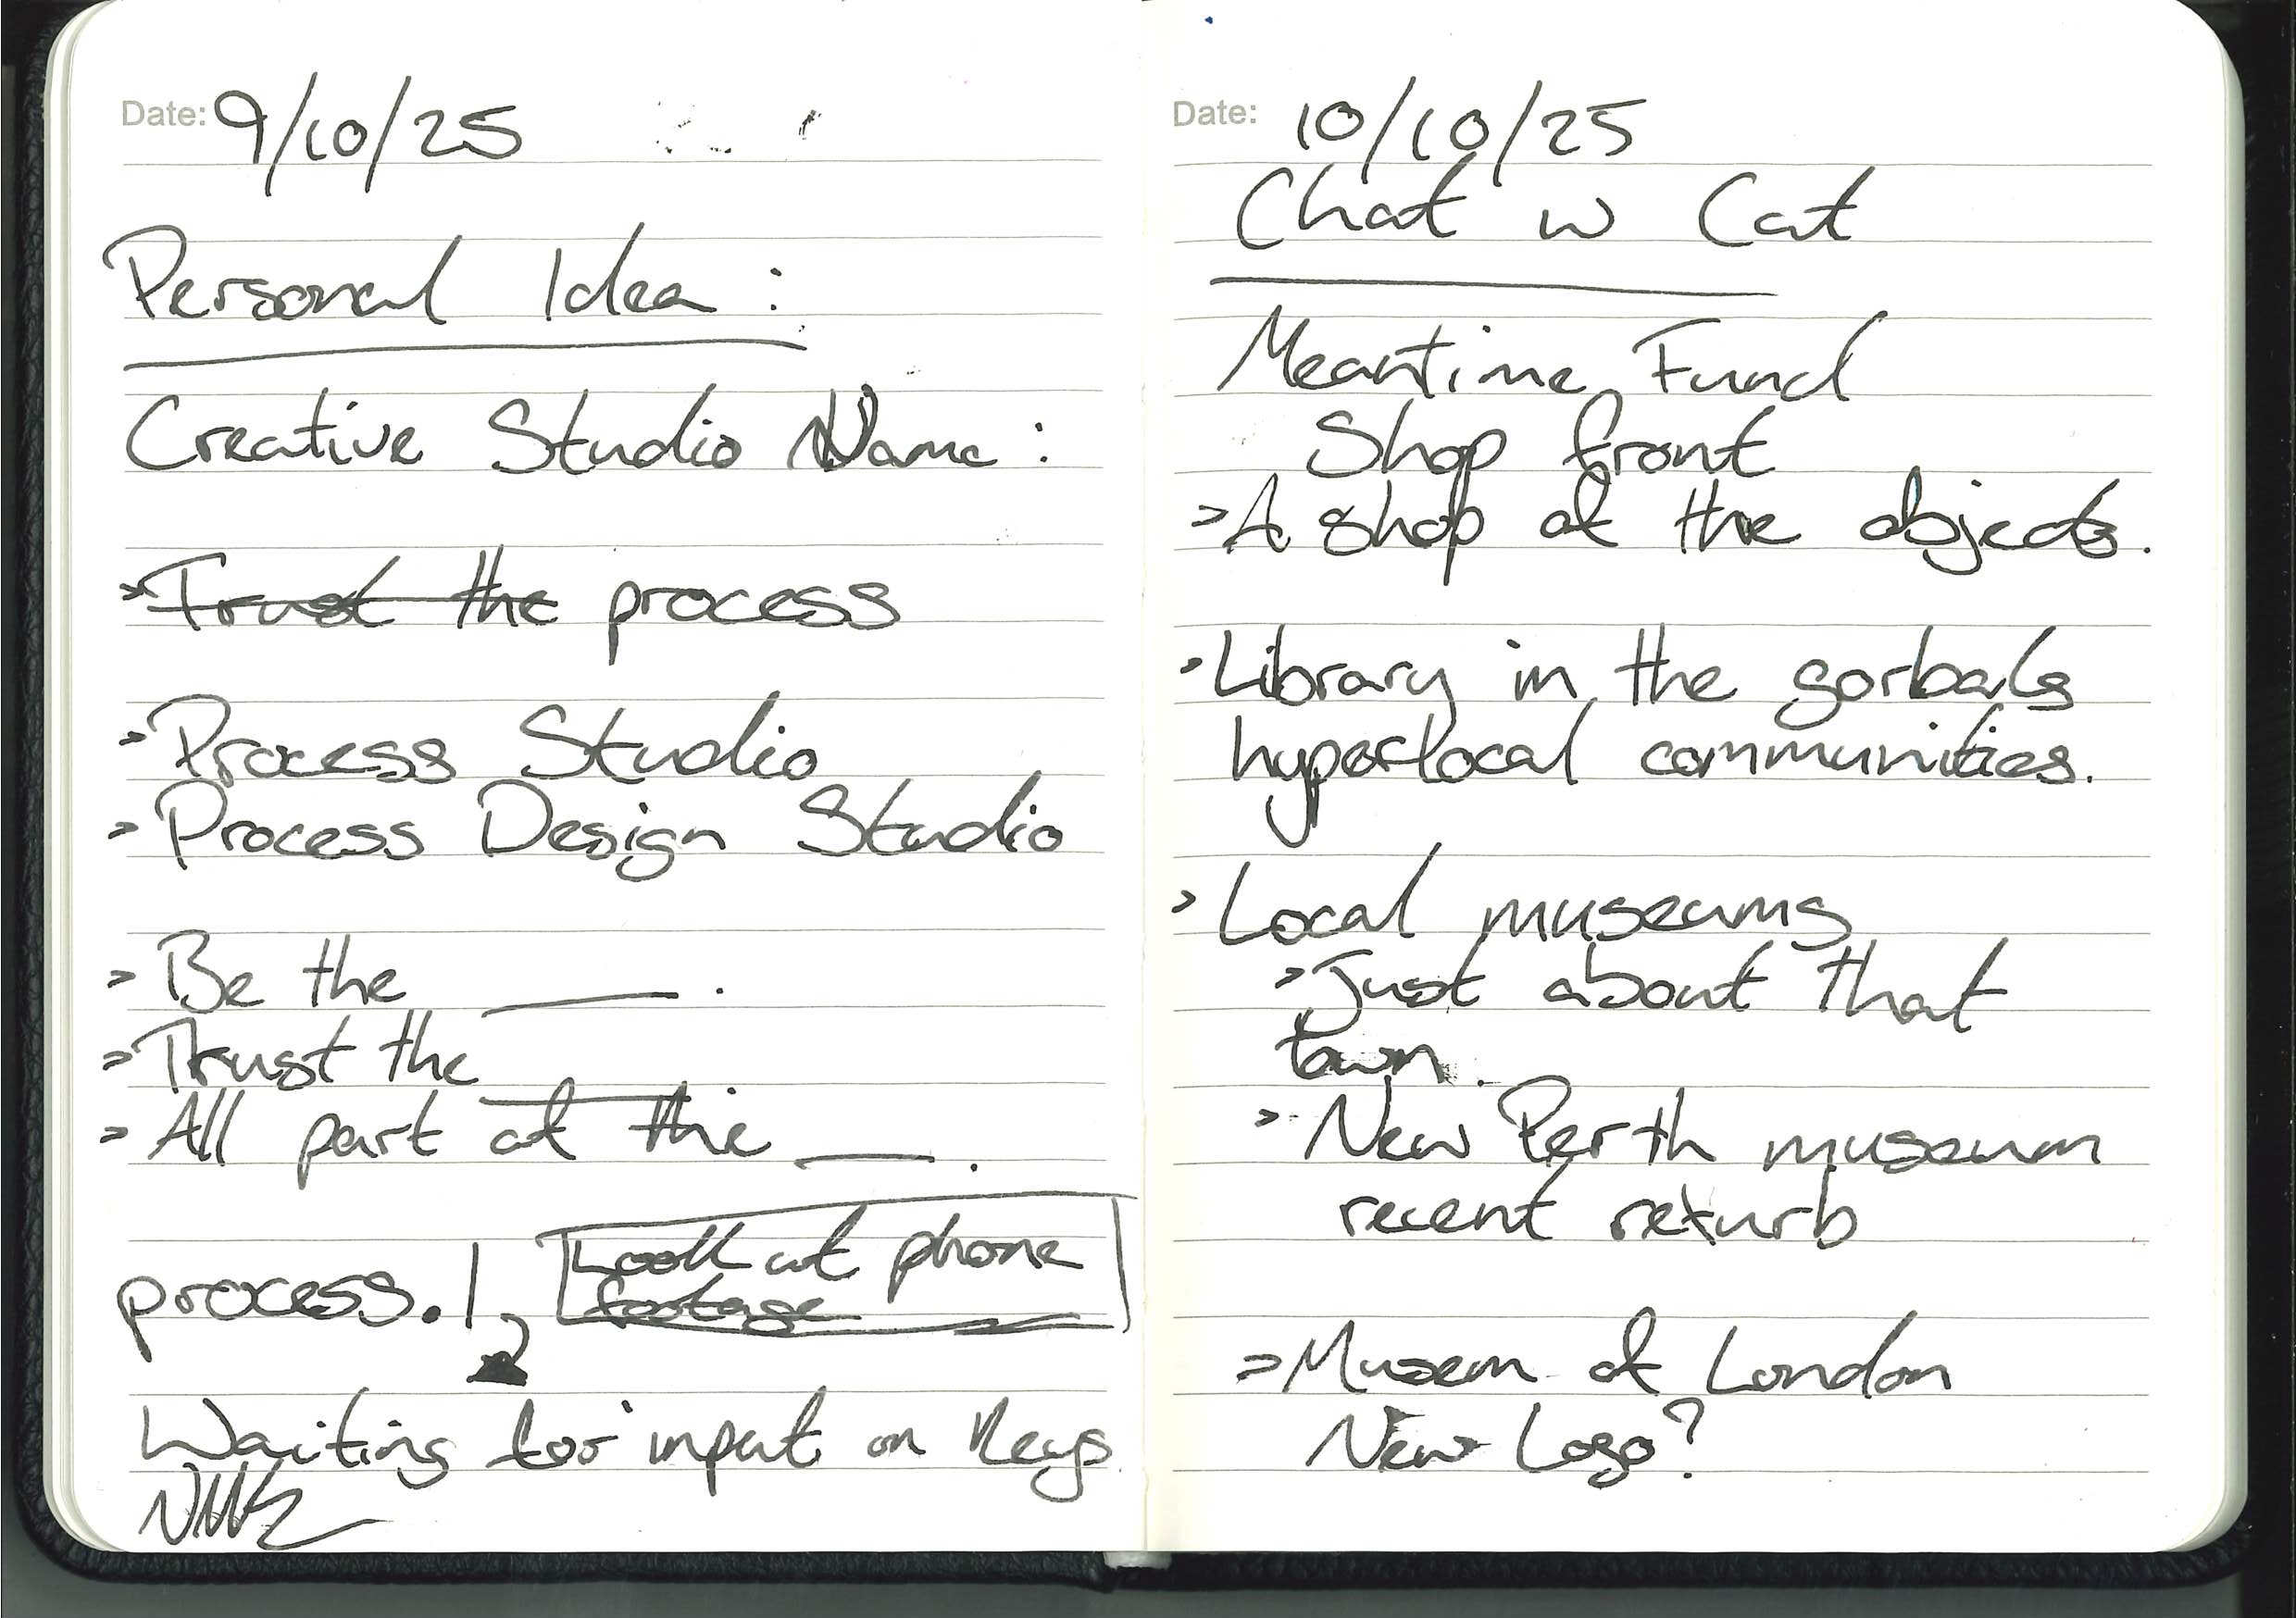 Date: 9/10/25
Personal Idea:
Creative Studio Name:
> Trust the process
> Process Studio
> Process Design Studio
> Be the ____.
> Trust the ____
> All part of the ____.
process.| Look at phone
footage
Waiting for input on Keys
Date: 10/10/25
Chat w Cat
Meantime Fund
Shop front
> A shop of the objects.
> Library in the gorbals
hyperlocal communities.
> Local museums
> Just about that
town.
> New Perth museum
recent refurb
> Musem of London
New Logo?